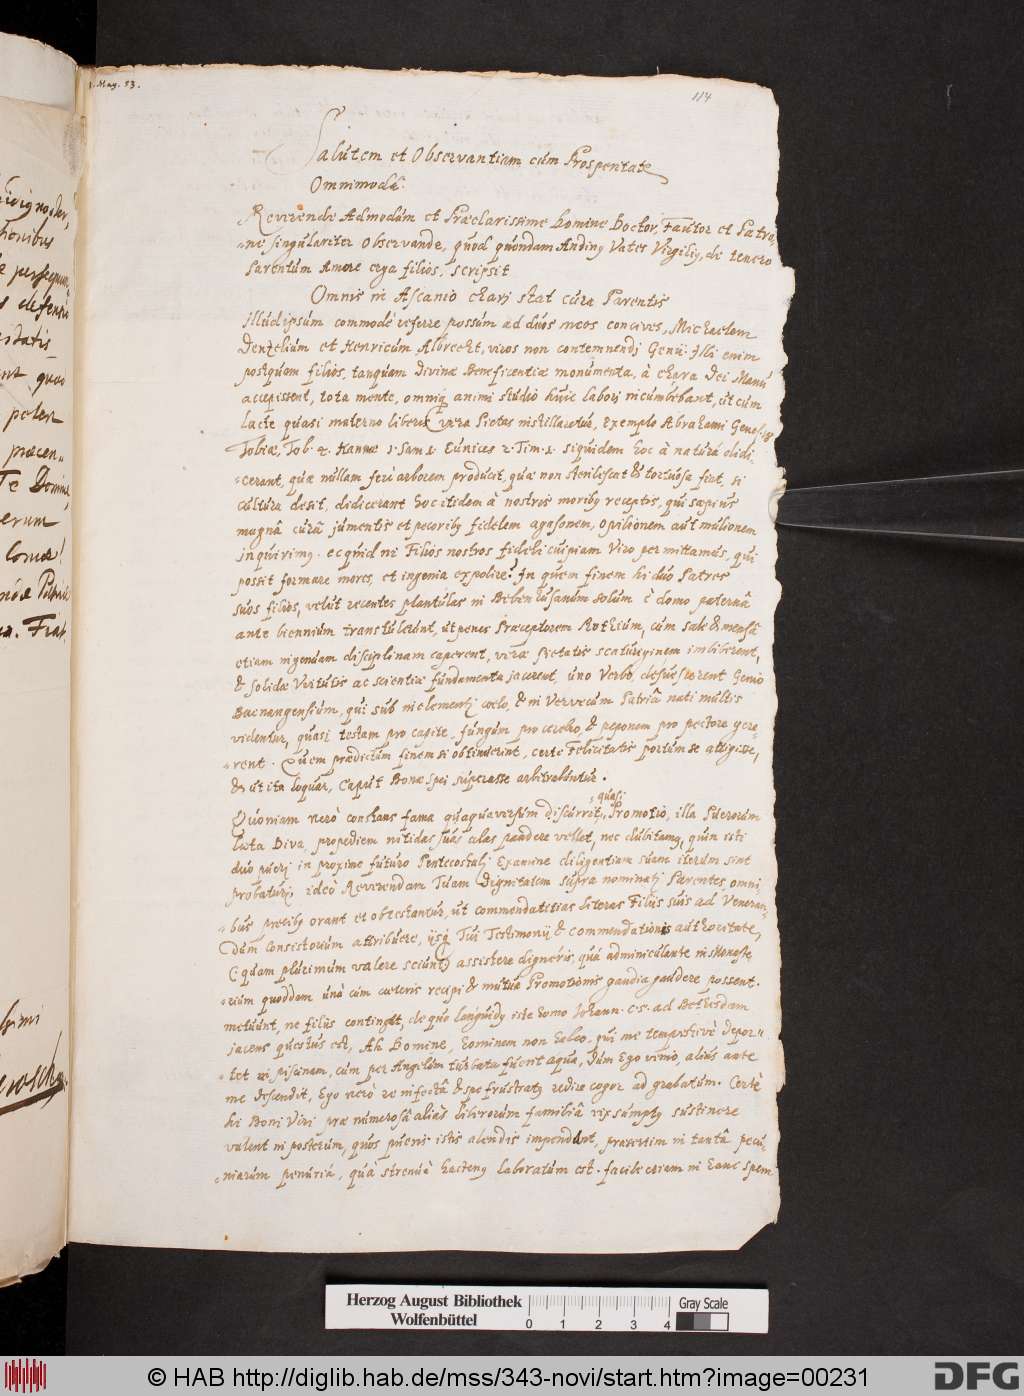 1. May. 53.
114
Salutem et Observantiam cum Prosperitate
Omnimodâ.
Reverende Admodum et Præclarissime Domine Doctor, Fautor et Patro-
ne singulariter Observande, quod quondam Andinus Vates Virgilius, de tenero
Parentum Amore erga filios, scripsit
Omnis in Ascanio chari stat cura Parentis
Illud ipsum commodè referre possum ad duos meos concives, Michaelem
Denzelium et Henricum Albrecht, viros non contemnendi Genii: Illi enim
postquam filios, tanquam Divinæ Beneficentiæ monumenta, à chara Dei Manu
accepissent, tota mente, omniq animi studio huic labori incumbebant, ut cum
lacte quasi materno liberis vera Pietas instillaretur, Exemplo Abrahami Genes. 18
Tobiæ, Tob. 4. Hannæ 1. Sam 1. Eunices 2. Tim. 1. siquidem hoc à naturâ didi-
cerant, quæ nullam ferè arborem producit, quæ non sterilescat & tortuosa fiat, si
cultura desit, didicerant hoc itidem à nostris moribus receptis, qui sæpius
magnâ curâ jumentis et pecoribus fidelem agasonem, opilionem aut mulionem
inquirimus. ecquid ni Filios nostros fideli cuipiam Viro permittamus, qui
possit formare mores, et ingenia expolire? In quem finem hi duo Patres
suos filios, velut recentes plantulas in Bebenhusanum solum è domo paternâ
ante biennium transtulerunt, ut penes Præceptorem Rothium, cum sale & mensâ
etiam ingenuam disciplinam caperent, veræ pietatis scaturiginem imbiberent,
& solidæ Virtutis ac scientiæ fundamenta jacerent, uno Verbo, desuescerent Genio
Bacnangensium, qui sub inclementi cœlo, & in Vervecum Patriâ nati multis
videntur, quasi testam pro capite, fungum pro cerebro, & peponem pro pectore gere-
rent. Quem prædictum finem si obtinuerint, certe Felicitatis portum se attigisse,
& ut ita loquar, Caput Bonæ spei superasse arbitrabuntur.
Quoniam verò constans fama quaquaversum discurrit, quasi Promotio, illa Puerorum
læta Diva, propediem nitidas suas alas pandere vellet, nec dubitamus, quin isti
duo pueri in proxime futuro Pentecostali Examine diligentiam suam iterum sint
probaturi, ideò Reverendam Tuam Dignitatem supra nominati Parentes, omni-
bus precibus orant et obtestantur, ut commendatitias literas Filiis suis ad Veneran-
dum Consistorium attribuere, ijsq Tui Testimonij & commendationis authoritate,
(quam plurimum valere sciunt) assistere digneris, quâ adminiculante in Monaste-
rium quoddam unà cum cæteris recipi & mutua Promotionis gaudia gaudere possent.
metuunt, ne filiis contingat, de quo languidus iste homo Johann. c. 5. ad Bethesdam
jacens questus est, Ah Domine, hominem non habeo, qui me tempestivè depor-
tet in piscinam, cum per Angelum turbata fuerit aqua, Dum Ego venio, alius ante
me descendit, Ego verò re infectâ & spe frustratus redire cogor ad grabatum. Certè
hi Boni Viri præ numerosâ alias liberorum familiâ vix sumptus sustinere
valent in posterum, quos pueris istis alendis impendunt, præsertim in tantâ pecu-
niarum penuriâ, quâ strenuè hactenus laboratum est. facile etiam in hanc spem
Herzog August Bibliothek
Wolfenbüttel
0 1 2 3 4
Gray Scale
© HAB http://diglib.hab.de/mss/343-novi/start.htm?image=00231
DFG